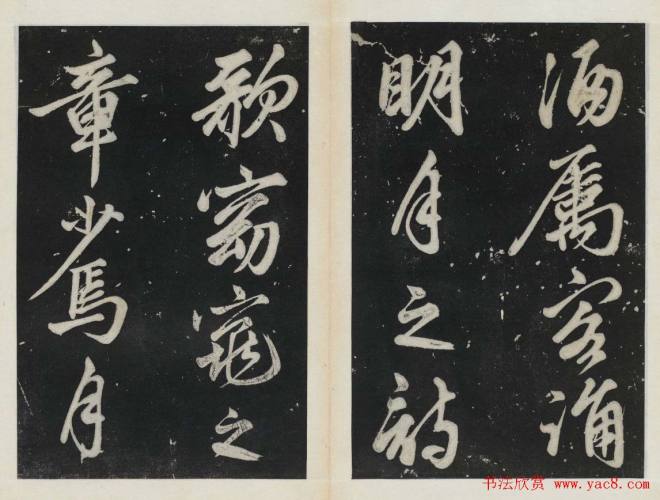 酒属客诵
明月之诗
歌窈窕之
章少焉月
书法欣赏 www.yac8.com